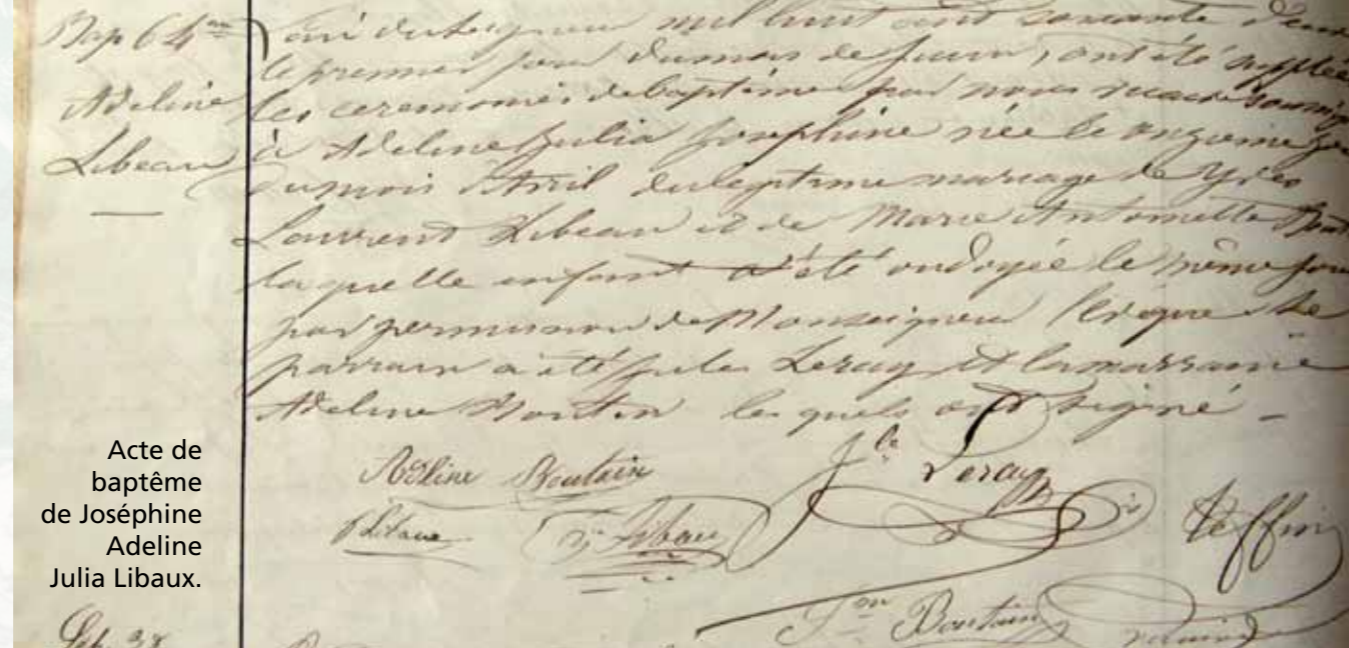 Bap 64me
Adeline
Libeau
L'an du Seigneur mil huit cent soixante deux
le premier jour du mois de Juin, ont été supplée
les ceremonies de baptême par nous vicaire soussigné
à Adeline Julia Josephine née le onzieme jour
du mois d'Avril du legitime mariage de Yves
Laurent Libeau et de Marie Antoinette
laquelle enfant a été ondoyée le même jour
par permission de Monseigneur l'évêque Le
parrain a été Jules Leray et la marraine
Adeline Boutin les quels ont signé
Adeline Boutain Jle Leray
Libau
Jon Boutain
Acte de
baptême
de Joséphine
Adeline
Julia Libaux.